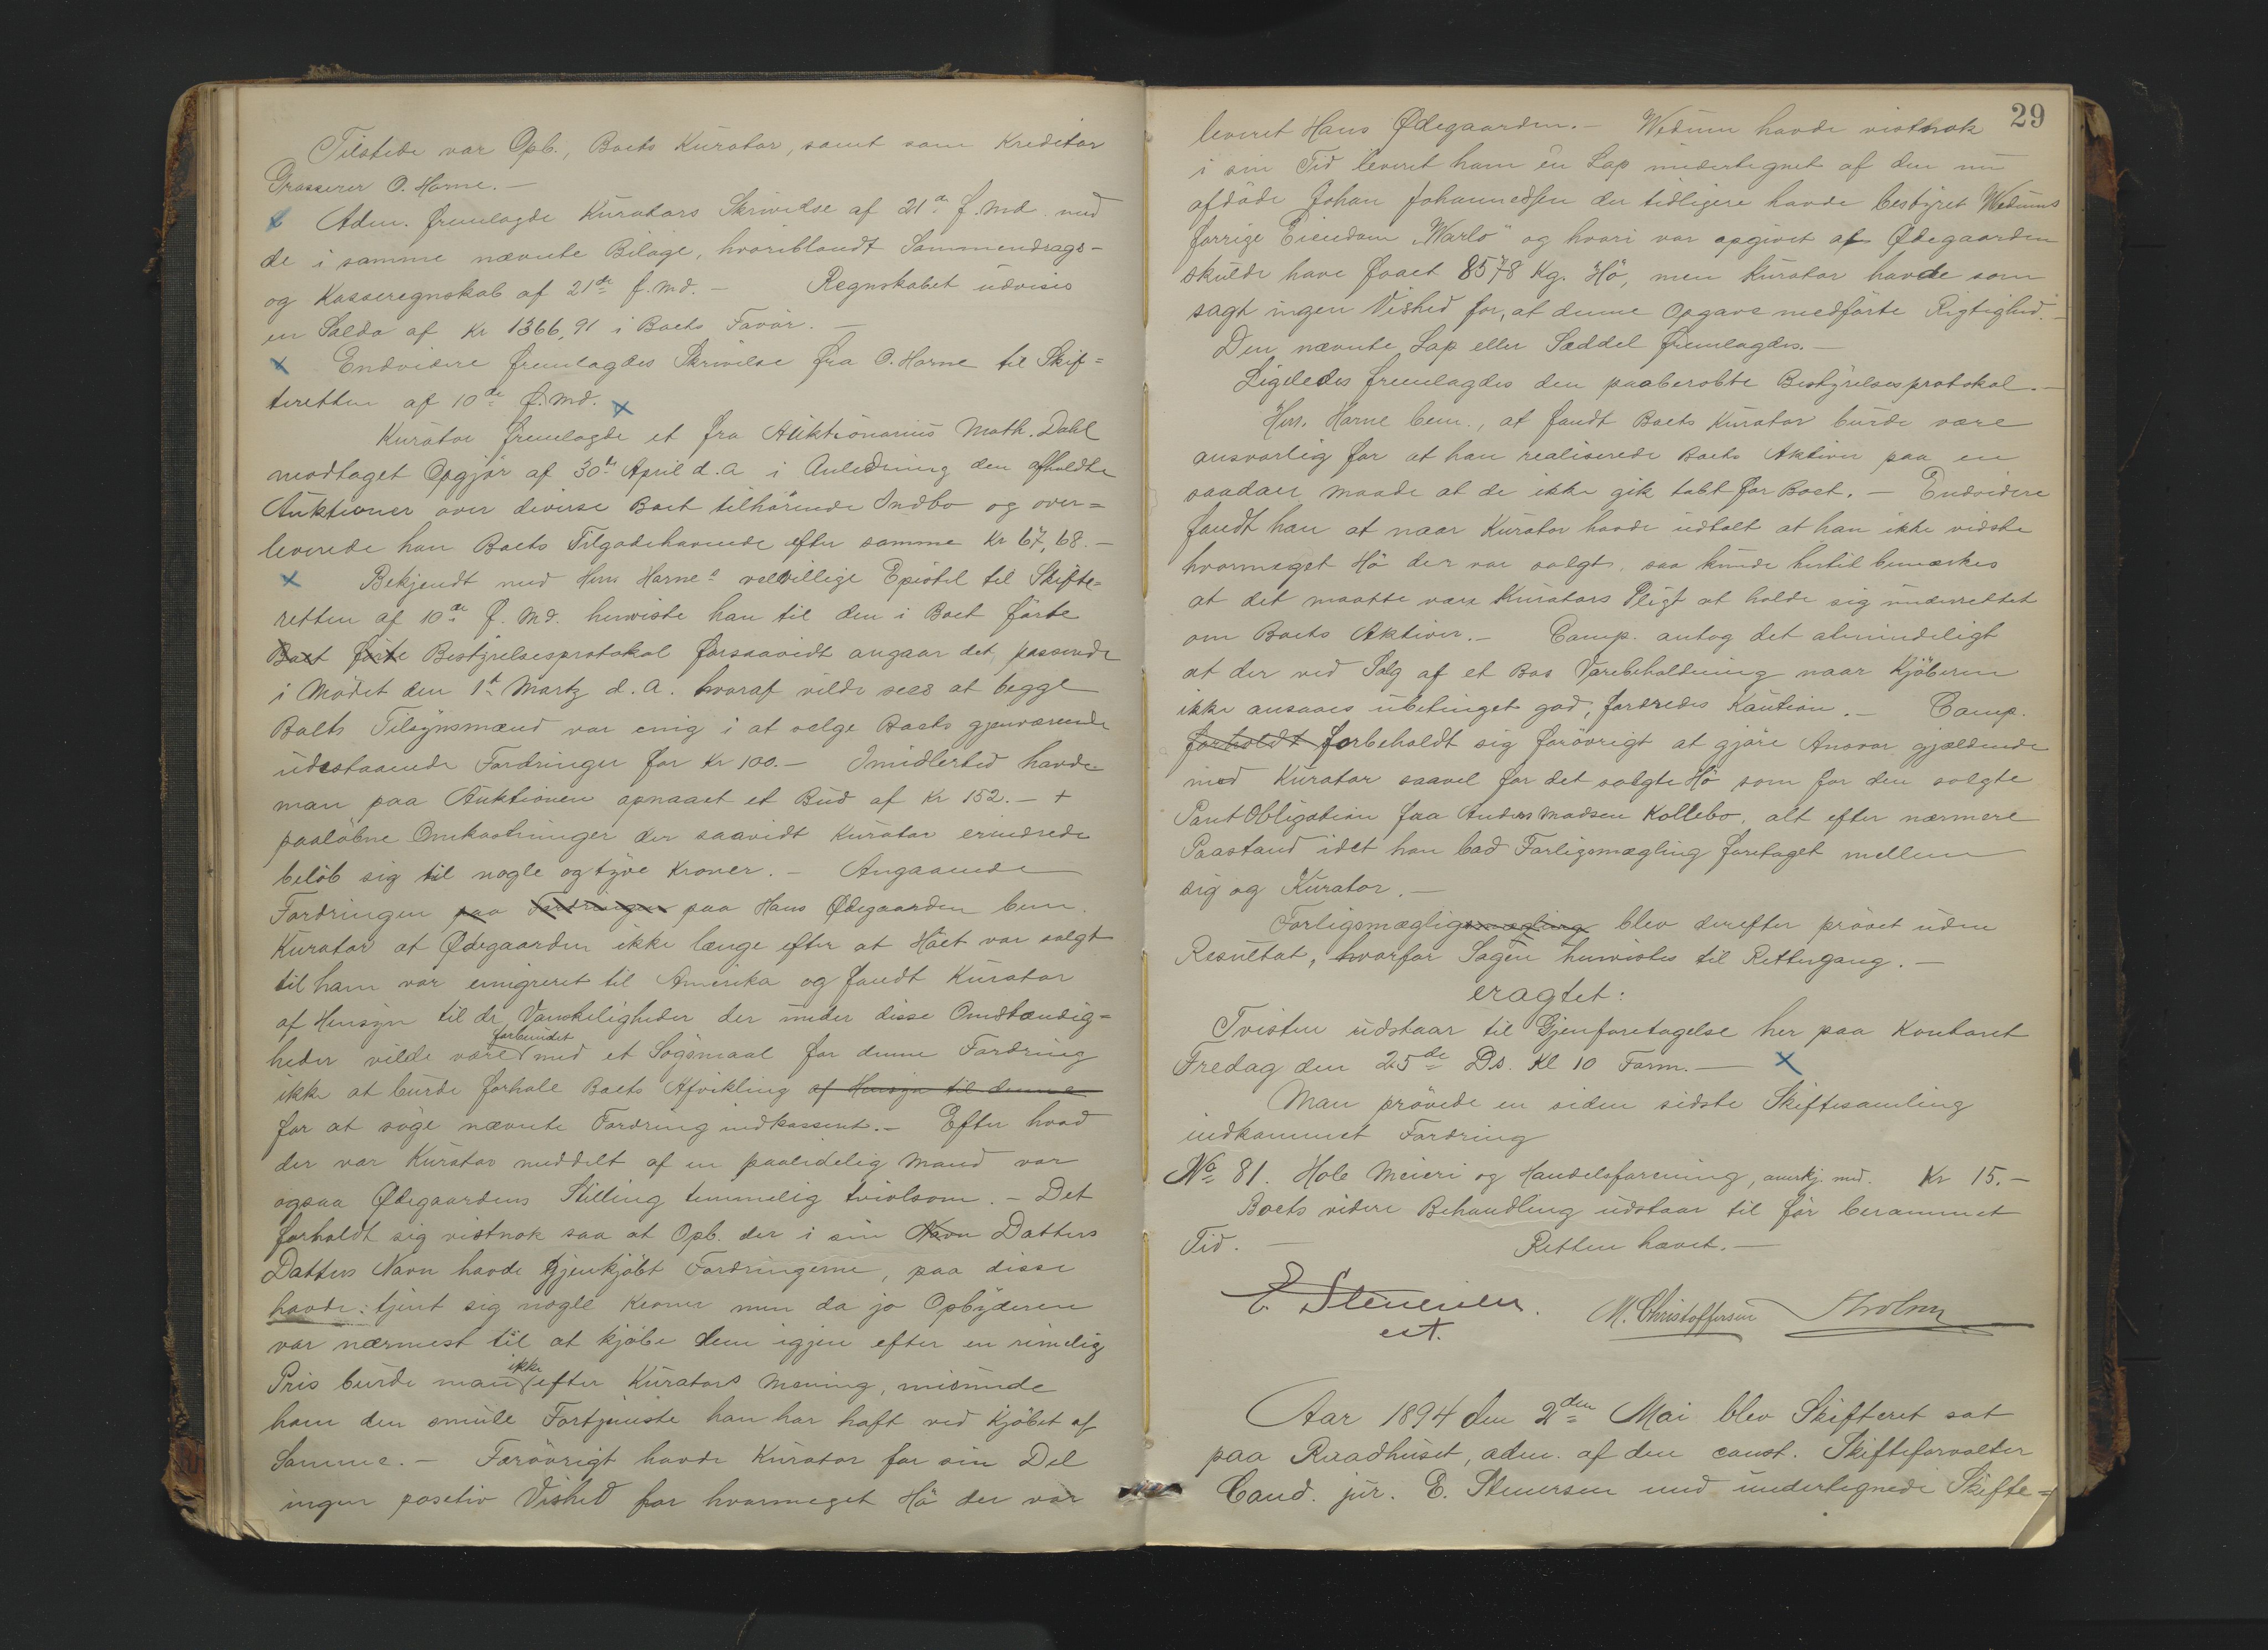 Tilstede var Opb., Boets Kurator, samt som Kreditor
Grosserer O. Horne. —
Adm. fremlagde Kurators Skrivelse af 21de f. md. med
de i samme nævnte Bilage, hvoriblandt Sammendrags-
og Kasseregnskab af 21de f. md. — Regnskabet udviser
en Saldo af Kr 1366,91 i Boets Favör. —
Endvidere fremlagdes Skrivelse fra O. Horne til Skif=
teretten af 10de f. md.
Kurator fremlagde et fra Auktionarius Math. Dahl
modtaget Opgjör af 30te April d. a i Anledning den afholdte
Auktioner over diverse Boet tilhörende Indbo og over=
leverede han Boets Tilgodehavende efter samme Kr 67,68. —
Bekjendt med Herr Hornes velvillige Epistel til Skifte=
retten af 10de f. Md. henviste han til den i Boet förte
Boet förte Bestyrelsesprotokol forsaavidt angaar det passerede
i Mödet den 1st Martz d. A. hvoraf vilde sees at begge
Boets Tilsynsmænd var enig i at sælge Boets gjenværende
udestaaende Fordringer for Kr 100. — Imidlertid havde
man paa Auktionen opnaaet et Bud af Kr 152. — +
paalöbne Omkostninger der saavidt Kurator erindrede
belöb sig til nogle og tyve Kroner. — Angaaende
Fordringen paa Fordringen paa Hans Ødegaarden bem.
Kurator at Ødegaarden ikke længe efter at Höet var solgt
til ham var emigreret til Amerika og fandt Kurator
af Hensyn til de Vanskeligheder der under disse Omstændig=
heder vilde være forbundet med et Sögsmaal for denne Fordring
ikke at burde forhale Boets Afvikling af Hensyn til denne
for at söge nævnte Fordring indkasseret. — Efter hvad
der var Kurator meddelt af en paalidelig Mand var
ogsaa Ødegaardens Stilling temmelig tvivlsom. — Det
forholdt sig vistnok saa at Opb. der i sin Navn Datters
Datters Navn havde Gjenkjöbt Fordringerne, paa disse
havde tjent sig nogle Kroner men da jo Opbyderen
var nærmest til at kjöbe dem igjen efter en rimelig
Pris burde man ikke efter Kurators Mening, misunde
ham den smule Fortjeneste han har haft ved Kjöbet af
Samme. — Forövrigt havde Kurator for sin Del
ingen positiv Vished for hvormeget Hö der var
29
leveret Hans Ødegaarden. — Wedum havde vistnok
i sin Tid leveret ham en Lap undertegnet af den nu
afdöde Johan Johannessen der tidligere havde bestyret Wedums
forrige Eiendom „Warlo" og hvori var opgivet at Ødegaarden
skulde have faaet 8578 Kg. Hö, men Kurator havde som
sagt ingen Vished for, at denne Opgave medförte Rigtighed. —
Den nævnte Lap eller Sæddel fremlagdes. —
Ligeledes fremlagdes den paaberobte Bestyrelsesprotokol. —
Herr Horne bem., at fandt Boets Kurator burde være
ansvarlig for at han realiserede Boets Aktiver paa en
saadan maade at de ikke gik tabt for Boet. — Endvidere
fandt han at naar Kurator havde udtalt at han ikke vidste
hvormeget Hö der var solgt, saa kunde hertil bemærkes
at det maatte være Kurators Pligt at holde sig underrettet
om Boets Aktiver. — Comp. antog det almindeligt
at der ved Salg af et Bos Varebeholdning naar Kjöberen
ikke ansaaes ubetinget god, fordredes Kaution. — Comp.
forholdt forbeholdt sig forövrigt at gjöre Ansvar gjældende
mod Kurator saavel for det solgte Hö som for den solgte
Pant Obligation fra Anders Madsen Kollebo, alt efter nærmere
Paastand idet han bad Forligsmægling foretaget mellem
sig og Kurator. —
Forligsmægligsmægling blev derefter prövet uden
Resultat, hvorfor Sagen henvistes til Rettergang. —
eragtet:
Tvisten udstaar til Gjenforetagelse her paa Kontoret
Fredag den 25de Ds. Kl 10 Form. —
Man prövede en siden sidste Skiftesamling
indkommet Fordring
No 81. Hole Meieri og Handelsforening, anerkj. med. Kr 15. —
Boets videre Behandling udstaar til för berammet
Tid. — Retten hævet. —
E. Steuersen. M. Christoffersen
cst.
Aar 1894 den 2den Mai blev Skifteret sat
paa Raadhuset, adm. af den const. Skifteforvalter
Cand. jur. E. Steuersen med undertegnede Skifte=